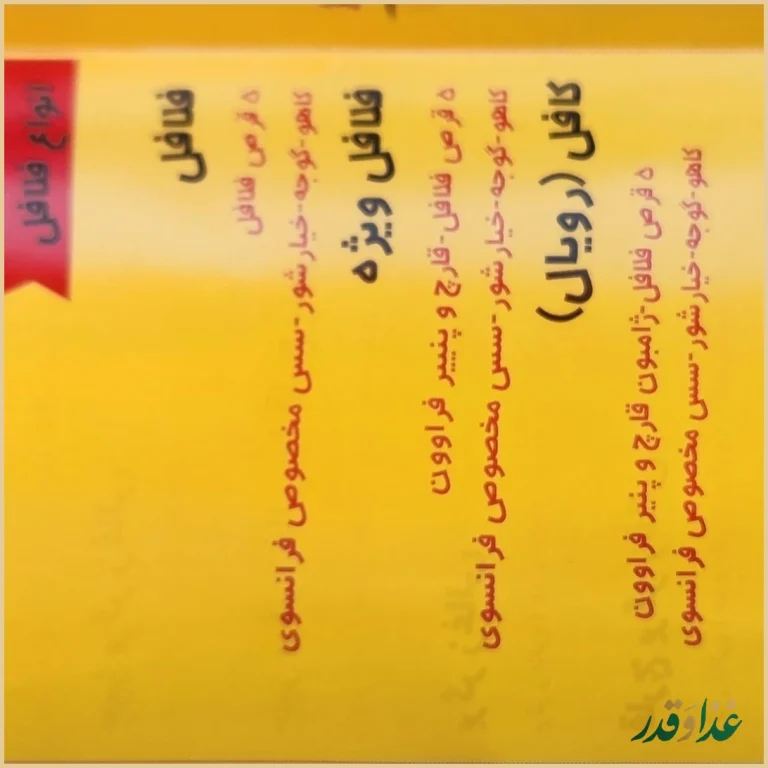 انواع فلافل
فلافل
۵ قرص فلافل
کاهو-گوجه-خیارشور-سس مخصوص فرانسوی
فلافل ویژه
۵ قرص فلافل-قارچ و پنیر فراوون
کاهو-گوجه-خیارشور-سس مخصوص فرانسوی
کافل (رویال)
۵ قرص فلافل-ژامبون قارچ و پنیر فراوون
کاهو-گوجه-خیارشور-سس مخصوص فرانسوی
غذا و قدر